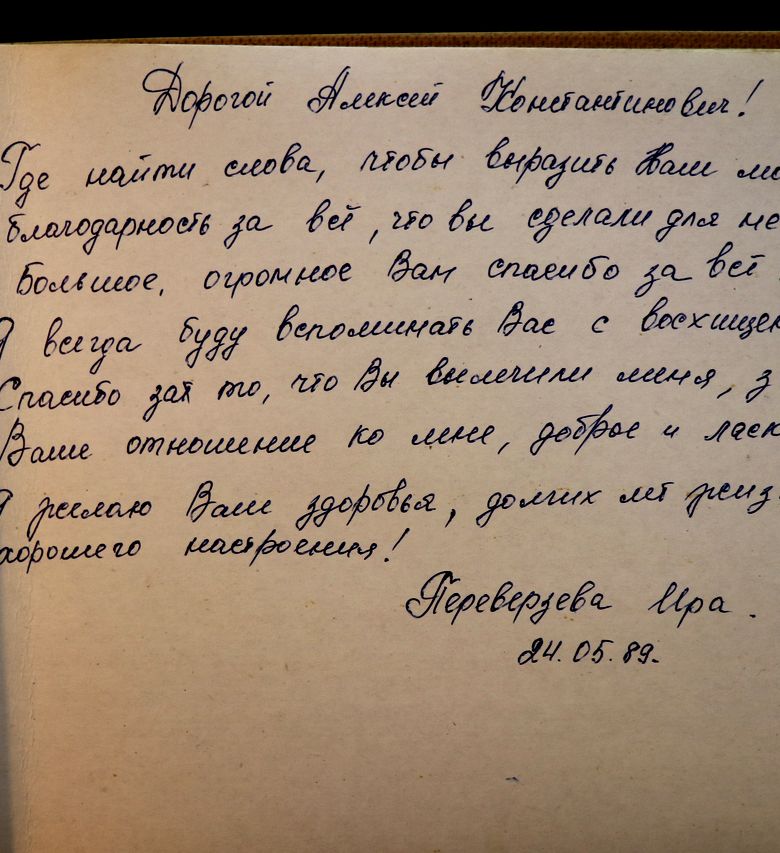 Дорогой Алексей Константинович!
Где найти слова, чтобы выразить Вам мо
благодарность за всё, что вы сделали для ме
Большое, огромное Вам спасибо за всё
Я всегда буду вспоминать Вас с восхищен
Спасибо за то, что Вы вылечили меня, з
Ваше отношение ко мне, доброе и ласк
Я желаю Вам здоровья, долгих лет жиз
хорошего настроения!
Переверзева Ира.
24.05.89.